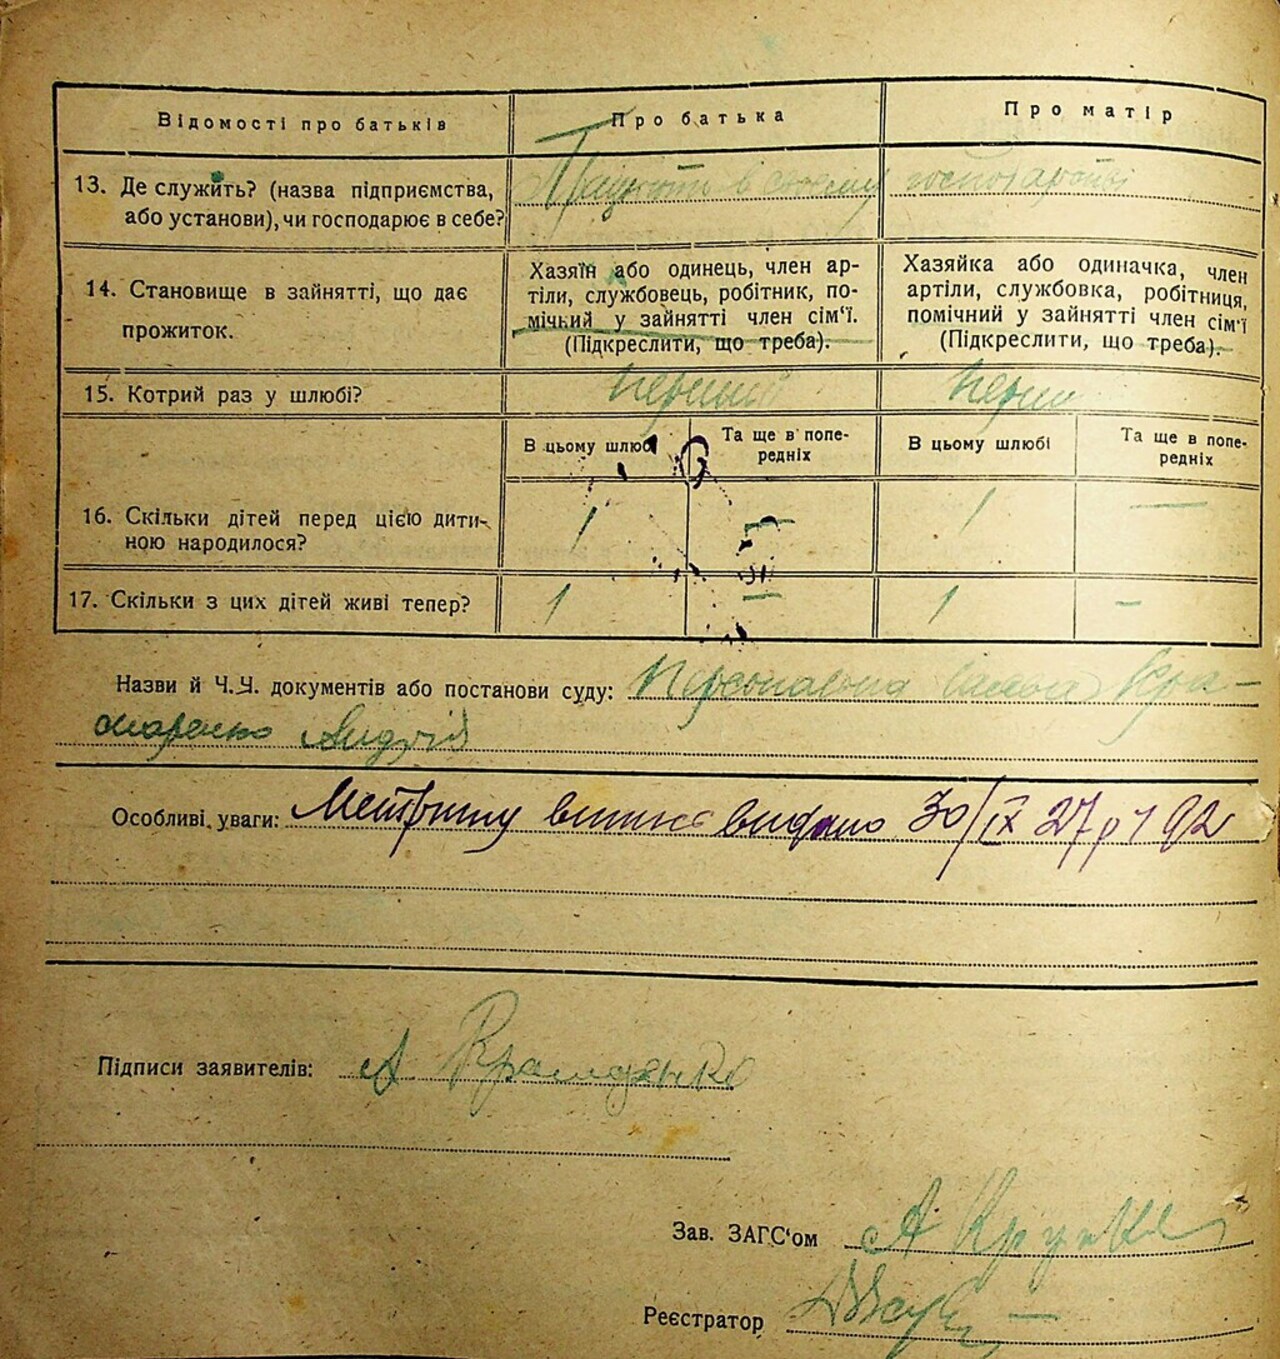 Відомості про батьків Про батька Про матір
13. Де служить? (назва підприємства, Працюють в своєму господарстві
або установи), чи господарює в себе?
14. Становище в зайнятті, що дає
прожиток.
Хазяїн або одинець, член ар-
тіли, службовець, робітник, по-
мічний у зайнятті член сім'ї.
(Підкреслити, що треба).
Хазяйка або одиначка, член
артіли, службовка, робітниця,
помічний у зайнятті член сім'ї
(Підкреслити, що треба).
15. Котрий раз у шлюбі? перший перш
В цьому шлюбі Та ще в попе-
редніх В цьому шлюбі Та ще в попе-
редніх
16. Скільки дітей перед цією дити-
ною народилося? 1 — 1 —
17. Скільки з цих дітей живі тепер? 1 — 1 —
Назви й Ч.Ч. документів або постанови суду: Персональна
Андрія
Особливі уваги: Метричну видано 30/IX 27 р 192
Підписи заявителів: А
Зав. ЗАГС'ом А
Реєстратор